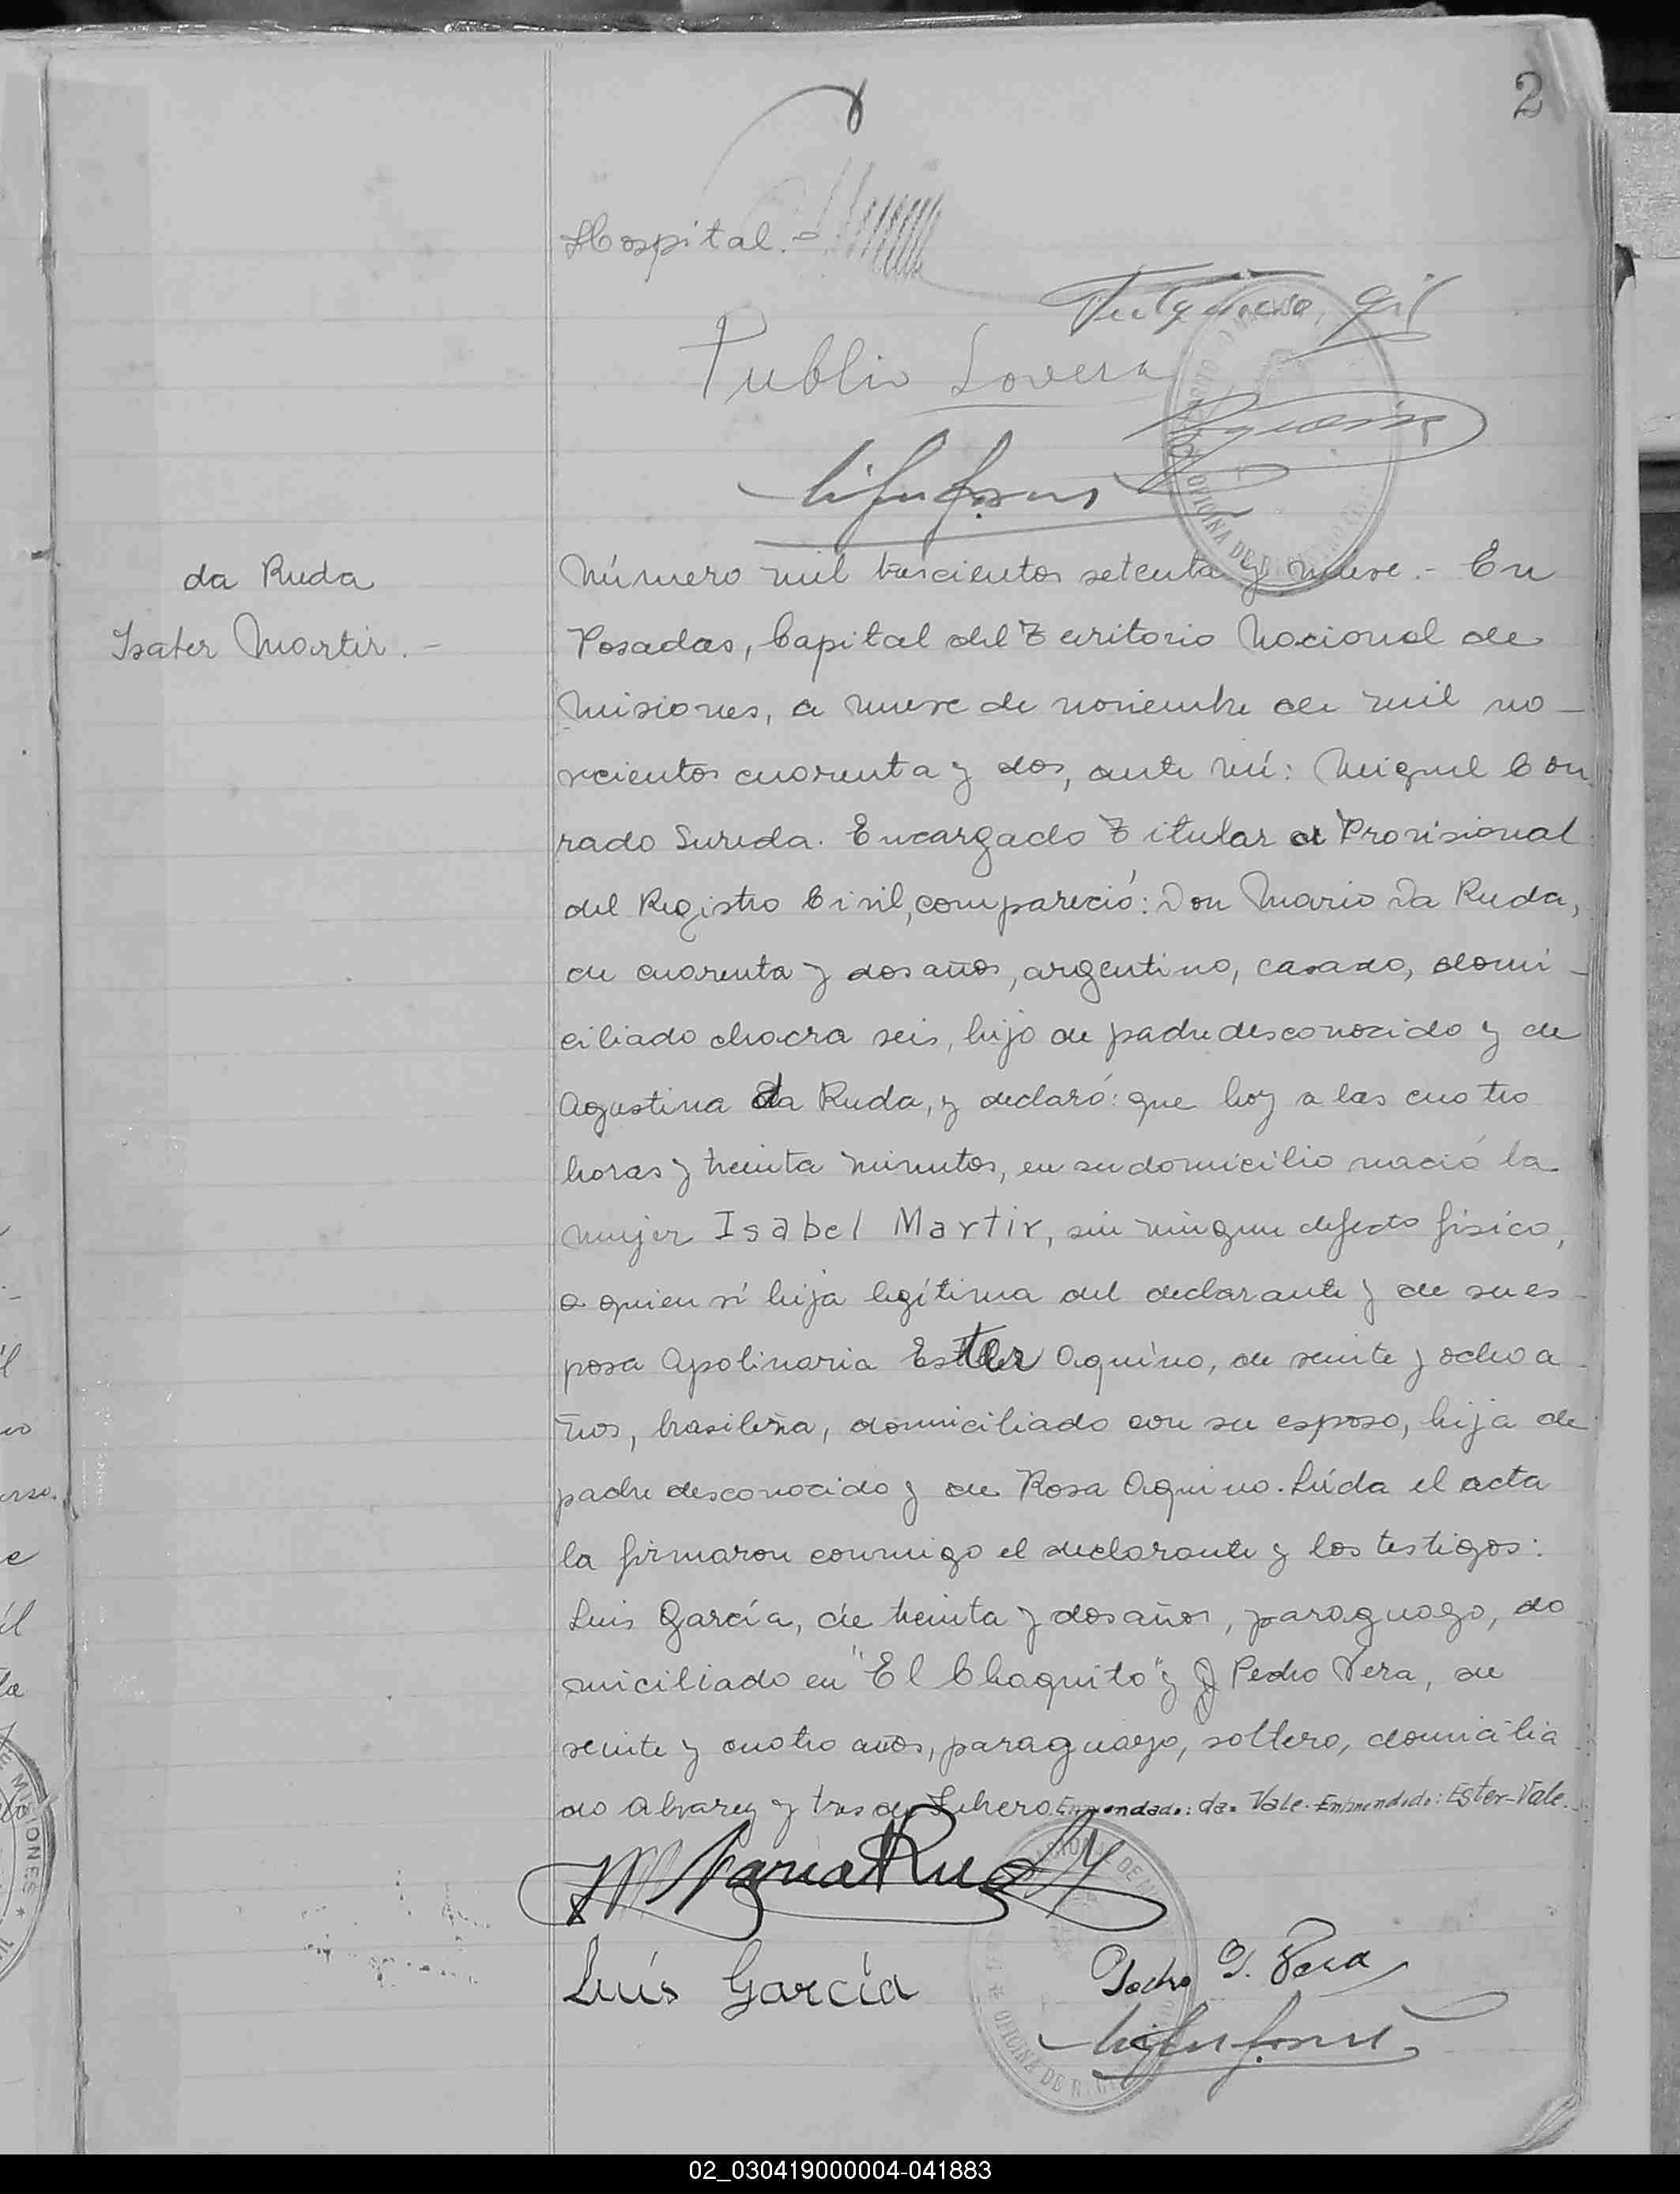 2
Hospital.-
Gil
Publio Lovera
da Ruda
Isater Martir.-
Número mil trescientos setenta y nueve.- En
Posadas, Capital del Territorio Nacional de
Misiones, a nueve de noviembre de mil no-
vecientos cuarenta y dos, ante mí: Miguel Con
rado Sureda. Encargado Titular Provisional
del Registro Civil, compareció: Don Mario Da Ruda,
de cuarenta y dos años, argentino, casado, domi-
ciliado chacra seis, hijo de padre desconocido y de
Agustina da Ruda, y declaró: que hoy a las cuatro
horas y treinta minutos, en su domicilio nació la
mujer Isabel Martir, sin ningun defecto físico,
a quien ví hija legítima del declarante y de su es-
posa Apolinaria Ester Aquino, de veinte y ocho a-
ños, brasileña, domiciliado con su esposo, hija de
padre desconocido y de Rosa Aquino. Leída el acta
la firmaron conmigo el declarante y los testigos:
Luis García, de treinta y dos años, paraguayo, do
miciliado en "El Chaquito" y Pedro Vera, de
veinte y cuatro años, paraguayo, soltero, domicilia
do Alvarez y tres de Febrero. Enmendado: da. Vale. Enmendado: Ester-Vale.
Mario Ruda
Luís García
Pedro J. Vera
OFICINA DE
MISIONES
02_030419000004-041883